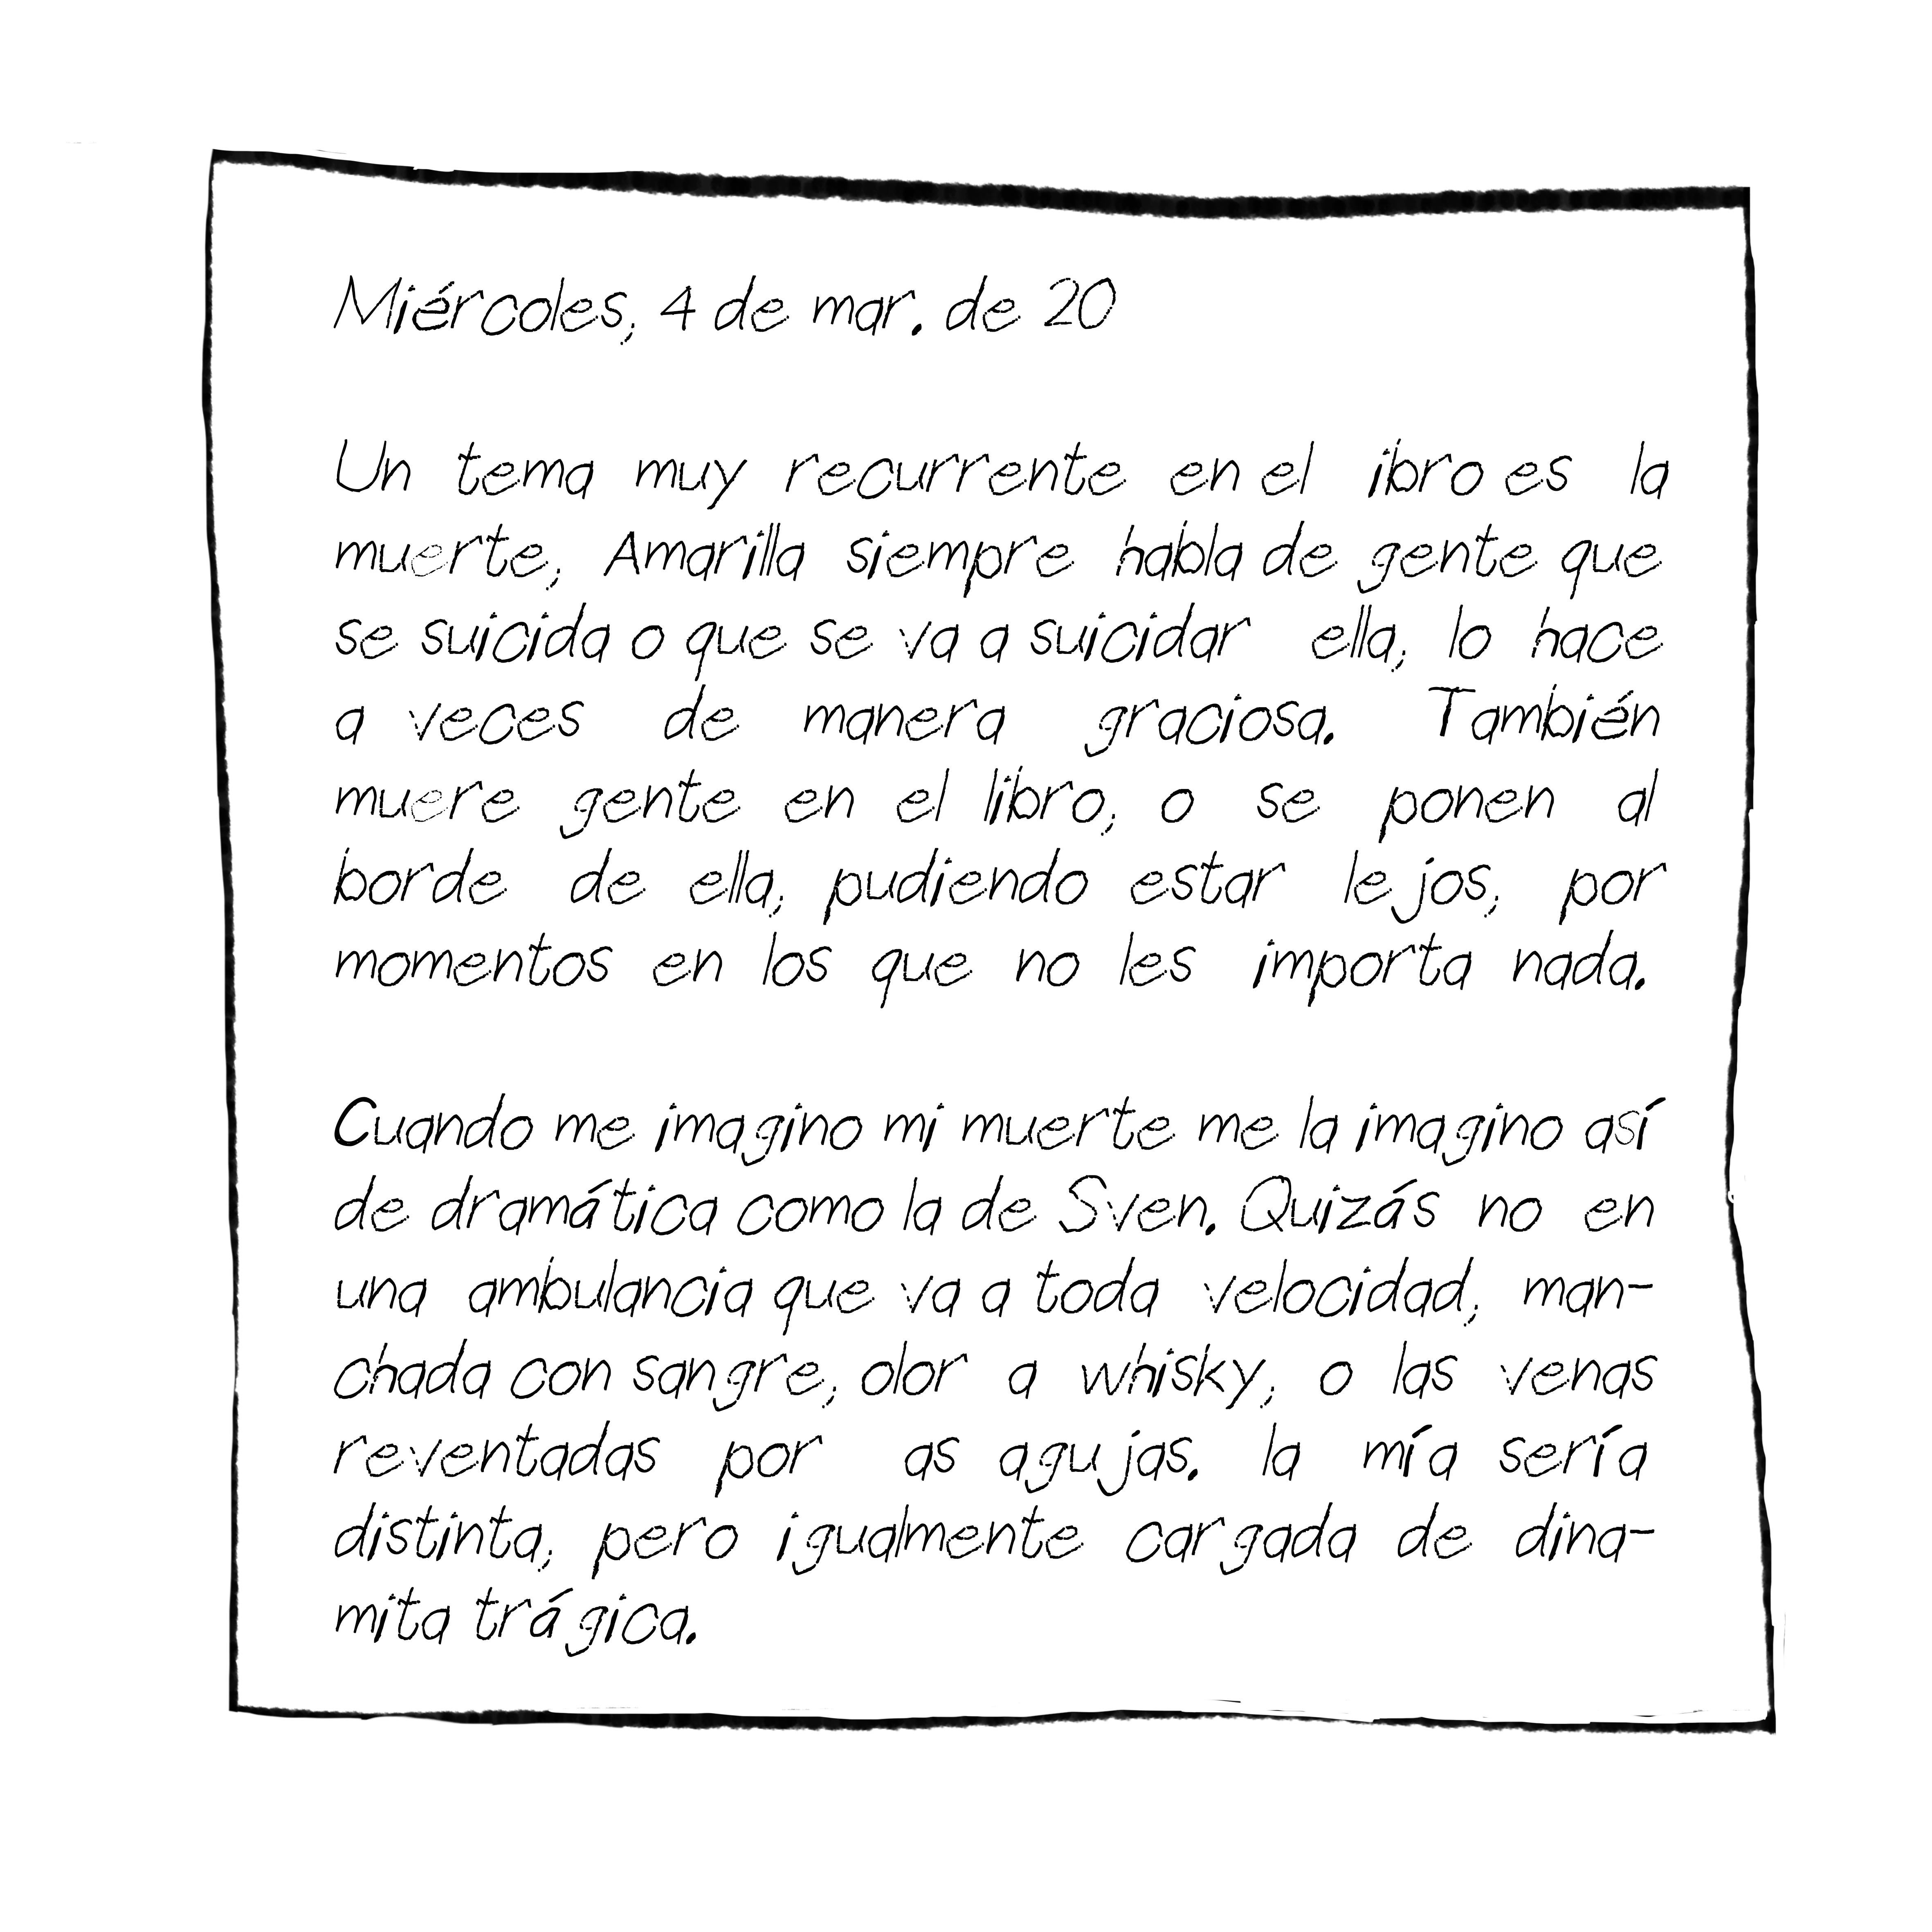 Miércoles, 4 de mar. de 20
Un tema muy recurrente en el ibro es la
muerte, Amarilla siempre habla de gente que
se suicida o que se va a suicidar ella, lo hace
a veces de manera graciosa. También
muere gente en el libro, o se ponen al
borde de ella, pudiendo estar lejos, por
momentos en los que no les importa nada.
Cuando me imagino mi muerte me la imagino así
de dramática como la de Sven. Quizás no en
una ambulancia que va a toda velocidad, man-
chada con sangre, olor a whisky, o las venas
reventadas por as agujas. la mía sería
distinta, pero igualmente cargada de dina-
mita trágica.